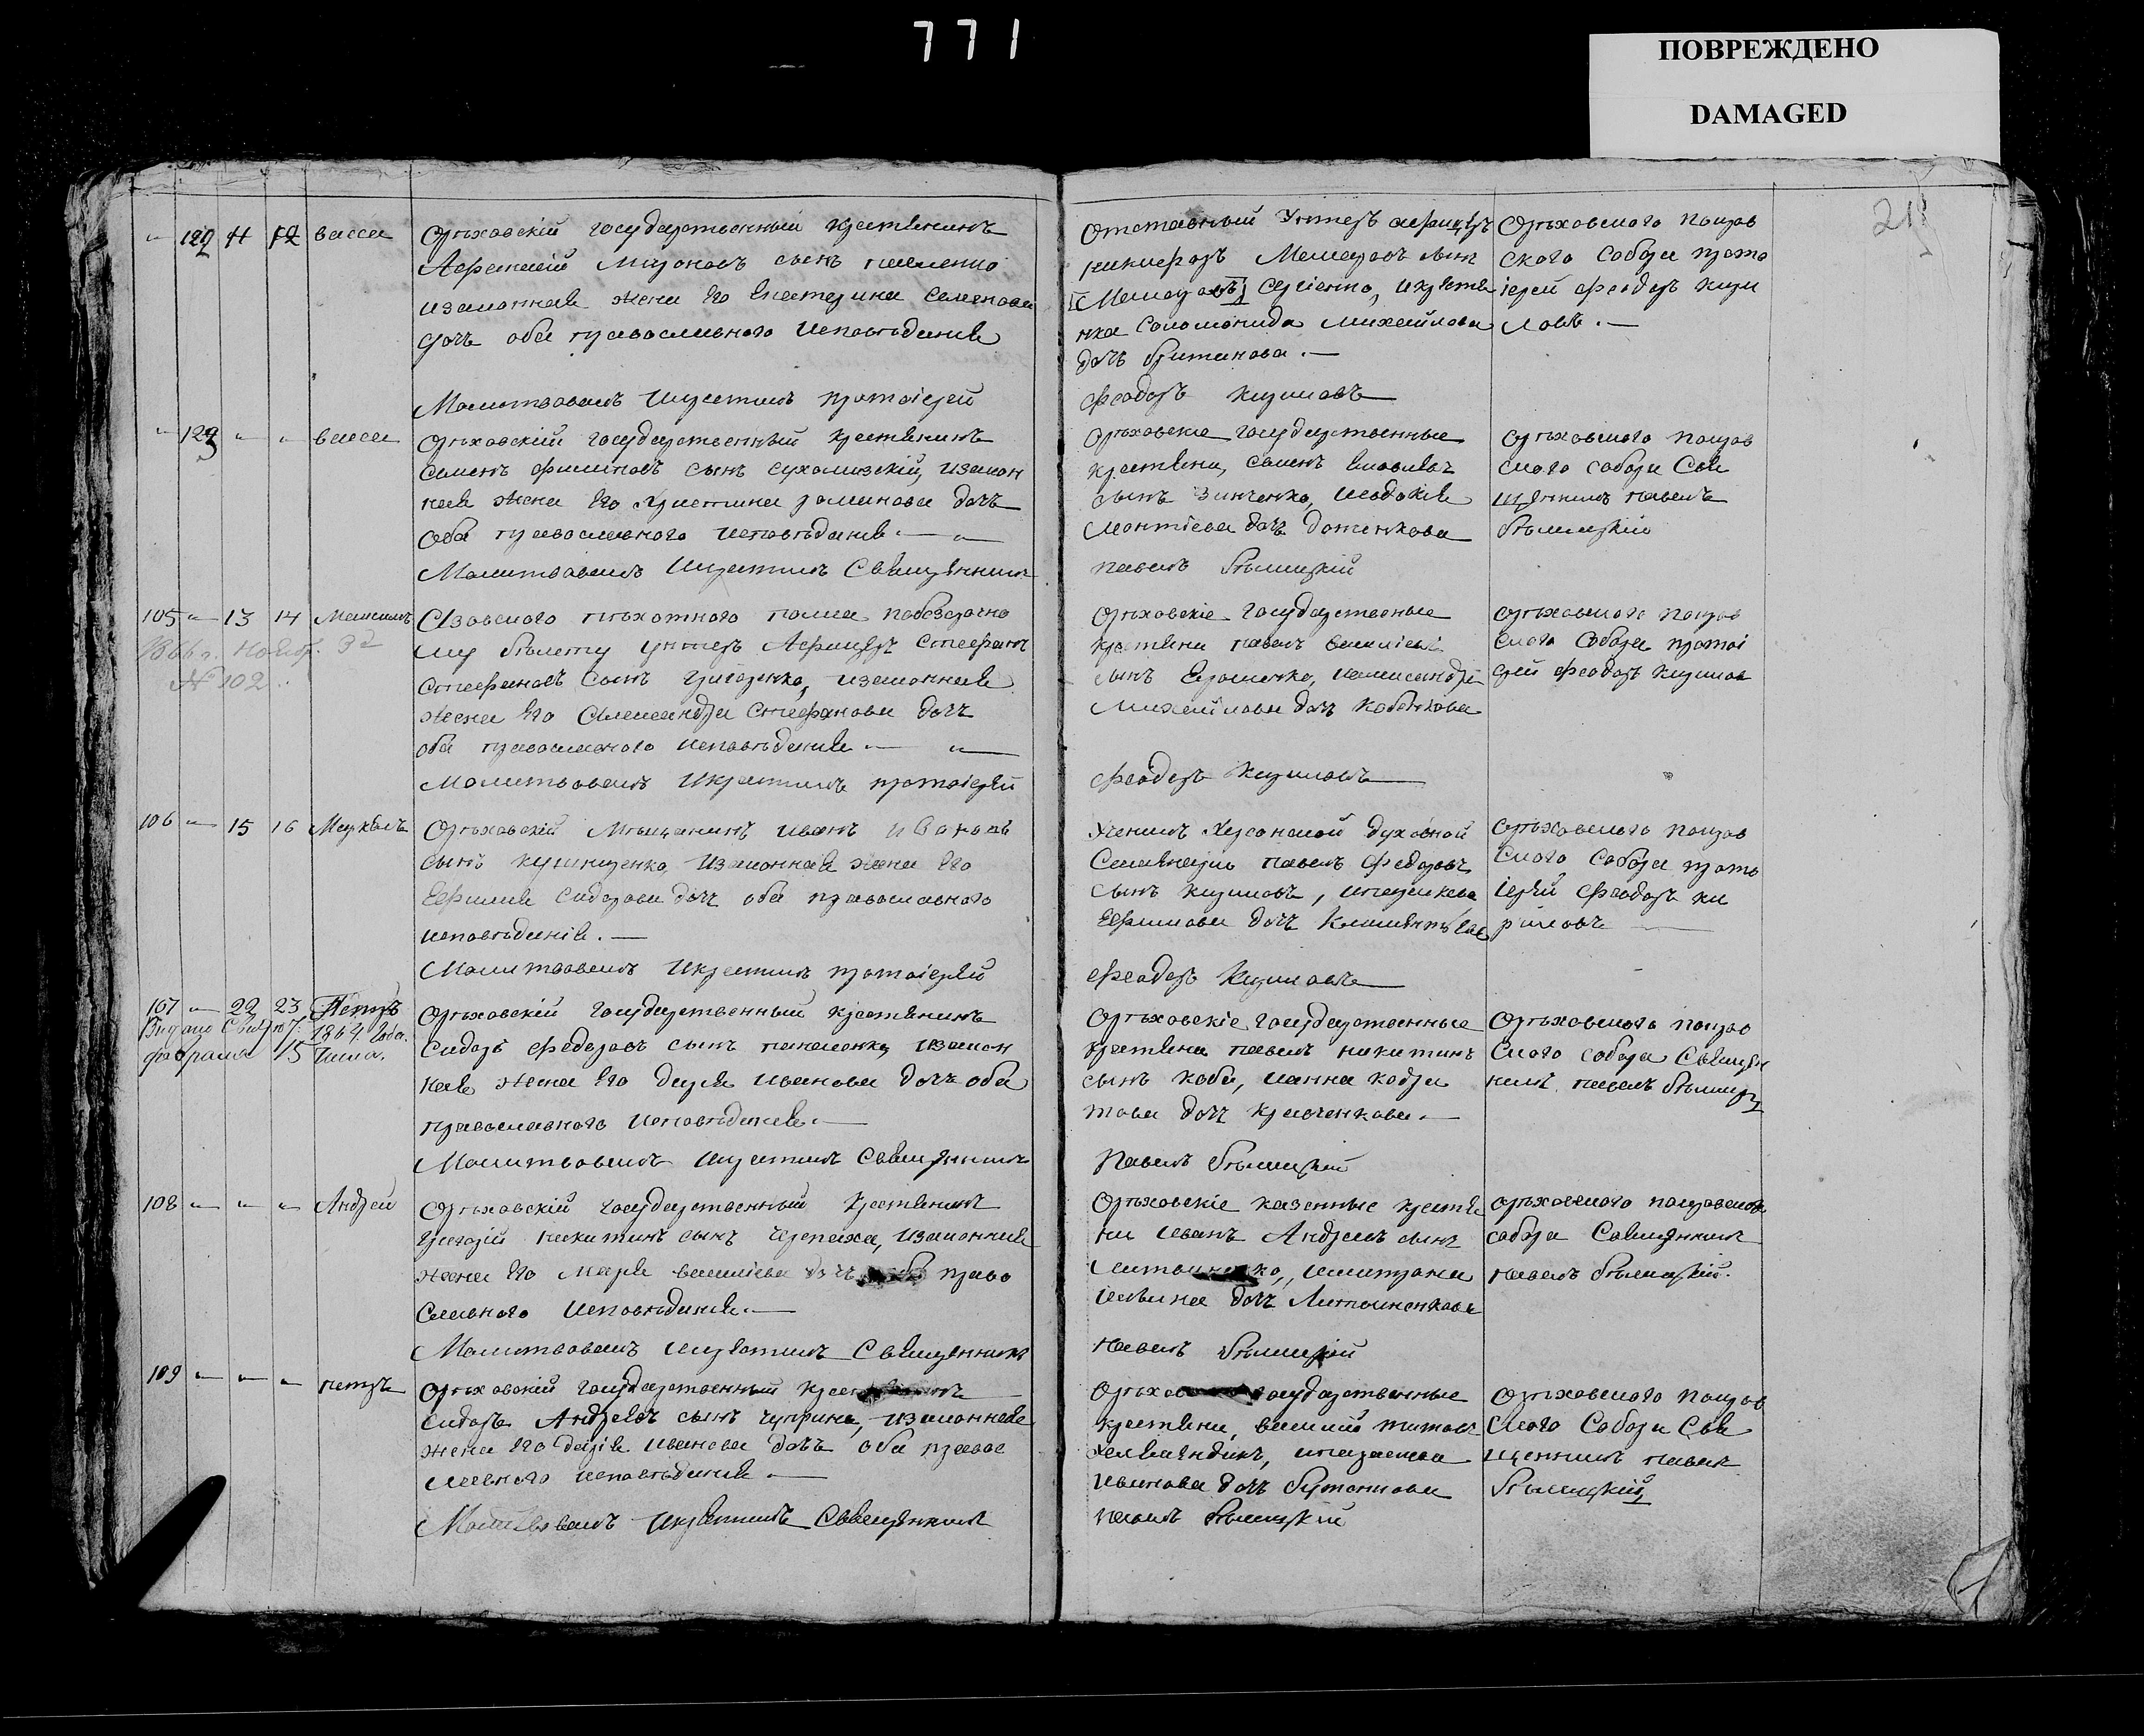 771
ПОВРЕЖДЕНО
DAMAGED
211
122 11 12 васса
Орѣховскій государственный крестьянинъ
Мироновъ сынъ
изаконная жена его Екатерина Семенова
дочь оба православнаго исповѣданія
Молитвовалъ икрестилъ протоіерей
Отставный Унтеръ афицеръ
никифоръ сынъ
Сергіенко, икрестья
нка Соломонида михайлова
дочь Бутикова.—
феодоръ кириловъ
Орѣховскаго покров
скаго собора прото
іерей феодоръ кири
ловъ.—
" 123 " " васса
Орѣховскій государственный крестьянинъ
Семенъ филиповъ сынъ сухомизскій, изакон
ная жена его христина романова дочь
оба православнаго исповѣданія.—"—
Молитвовалъ икрестилъ Священникъ
Орѣховскіе государственные
крестьяни, семенъ яковлевъ
сынъ зинченко, иевдокія
леонтіева дочь доценкова
павелъ Бѣлицкій
орѣховскаго покров
скаго собора Свя
щенникъ павелъ
Бѣлицкій
105 " 13 14 Максимъ
1866 г. Нояб. 3д
№ 102
Азовскаго пѣхотнаго полка побезсрочно
му билету унтеръ Афицеръ стефанъ
стефановъ сынъ григоренко, изаконная
жена его Александра стефанова дочь
оба православнаго исповѣданія.—"—
Молитвовалъ икрестилъ протоіерей
Орѣховскіе государственые
крестьяни павелъ василіевъ
сынъ Ярошенко, иалександра
михайлова дочь кобелкова
феодоръ кириловъ
орѣховскаго покров
скаго собора протоі
ерей феодоръ кирилов
106 " 15 16
Орѣховскій мѣщанинъ иванъ ивановъ
сынъ кушниренко, изаконная жена его
Ефимія сидорова дочь оба православнаго
исповѣданія.—
Молитвовалъ икрестилъ протоіерей
ученикъ херсонской духовной
Семинаріи павелъ федоровъ
сынъ кириловъ, ипараскева
Ефимова дочь
феодоръ кириловъ
орѣховскаго покров
скаго собора прото
іерей феодоръ ки
риловъ
107 " 22 23 Петръ
Выдано Свид. 107. 1864 Года.
февраля 15 Числа.
Орѣховскій государственный крестьянинъ
Сидоръ федоровъ сынъ пономенко, изакон
ная жена его Дарія иванова дочь оба
православнаго исповѣданія.—
Молитвовалъ икрестилъ Священникъ
Орѣховскіе государственные
крестьяни павелъ никитинъ
сынъ коба, ианна кодра
това дочь кравченкова.—
Павелъ Бѣлицкій
Орѣховскаго покров
скаго собора Священ
никъ павелъ Бѣлицкі
108 " " " Андрей
Орѣховскій государственный крестьянинъ
Григорій никитинъ сынъ черепаха, изаконная
жена его марія василіева дочь оба право
славнаго исповѣданія.—
Молитвовалъ икрестилъ Священникъ
Орѣховскіе казенные крестья
ни иванъ Андреевъ сынъ
имитрона
дочь Литвиненкова
павелъ Бѣлицкій
орѣховскаго покровскаго
собора Священникъ
павелъ Бѣлицкій.
109 " " " петръ
Орѣховскій государственный
Сидоръ Андреевъ сынъ чуприна, изаконная
жена его дарія иванова дочь оба правос
лавнаго исповѣданія.—
Молитвовалъ икрестилъ Священникъ
государственные
крестьяни, василій титовъ
ипараскева
иванова дочь Бутенкова
павелъ Бѣлицкій
Орѣховскаго покров
скаго Собора Свя
щенникъ павелъ
Бѣлицкій